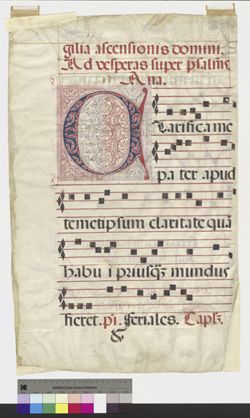 gilia ascensionis domini.
Ad vesperas super psalmos
Ana.
Clarifica me
pa ter apud
temetipsum claritate quā
habu i priusq̄ mundus
fieret. ps̄. feriales. Capl̄.